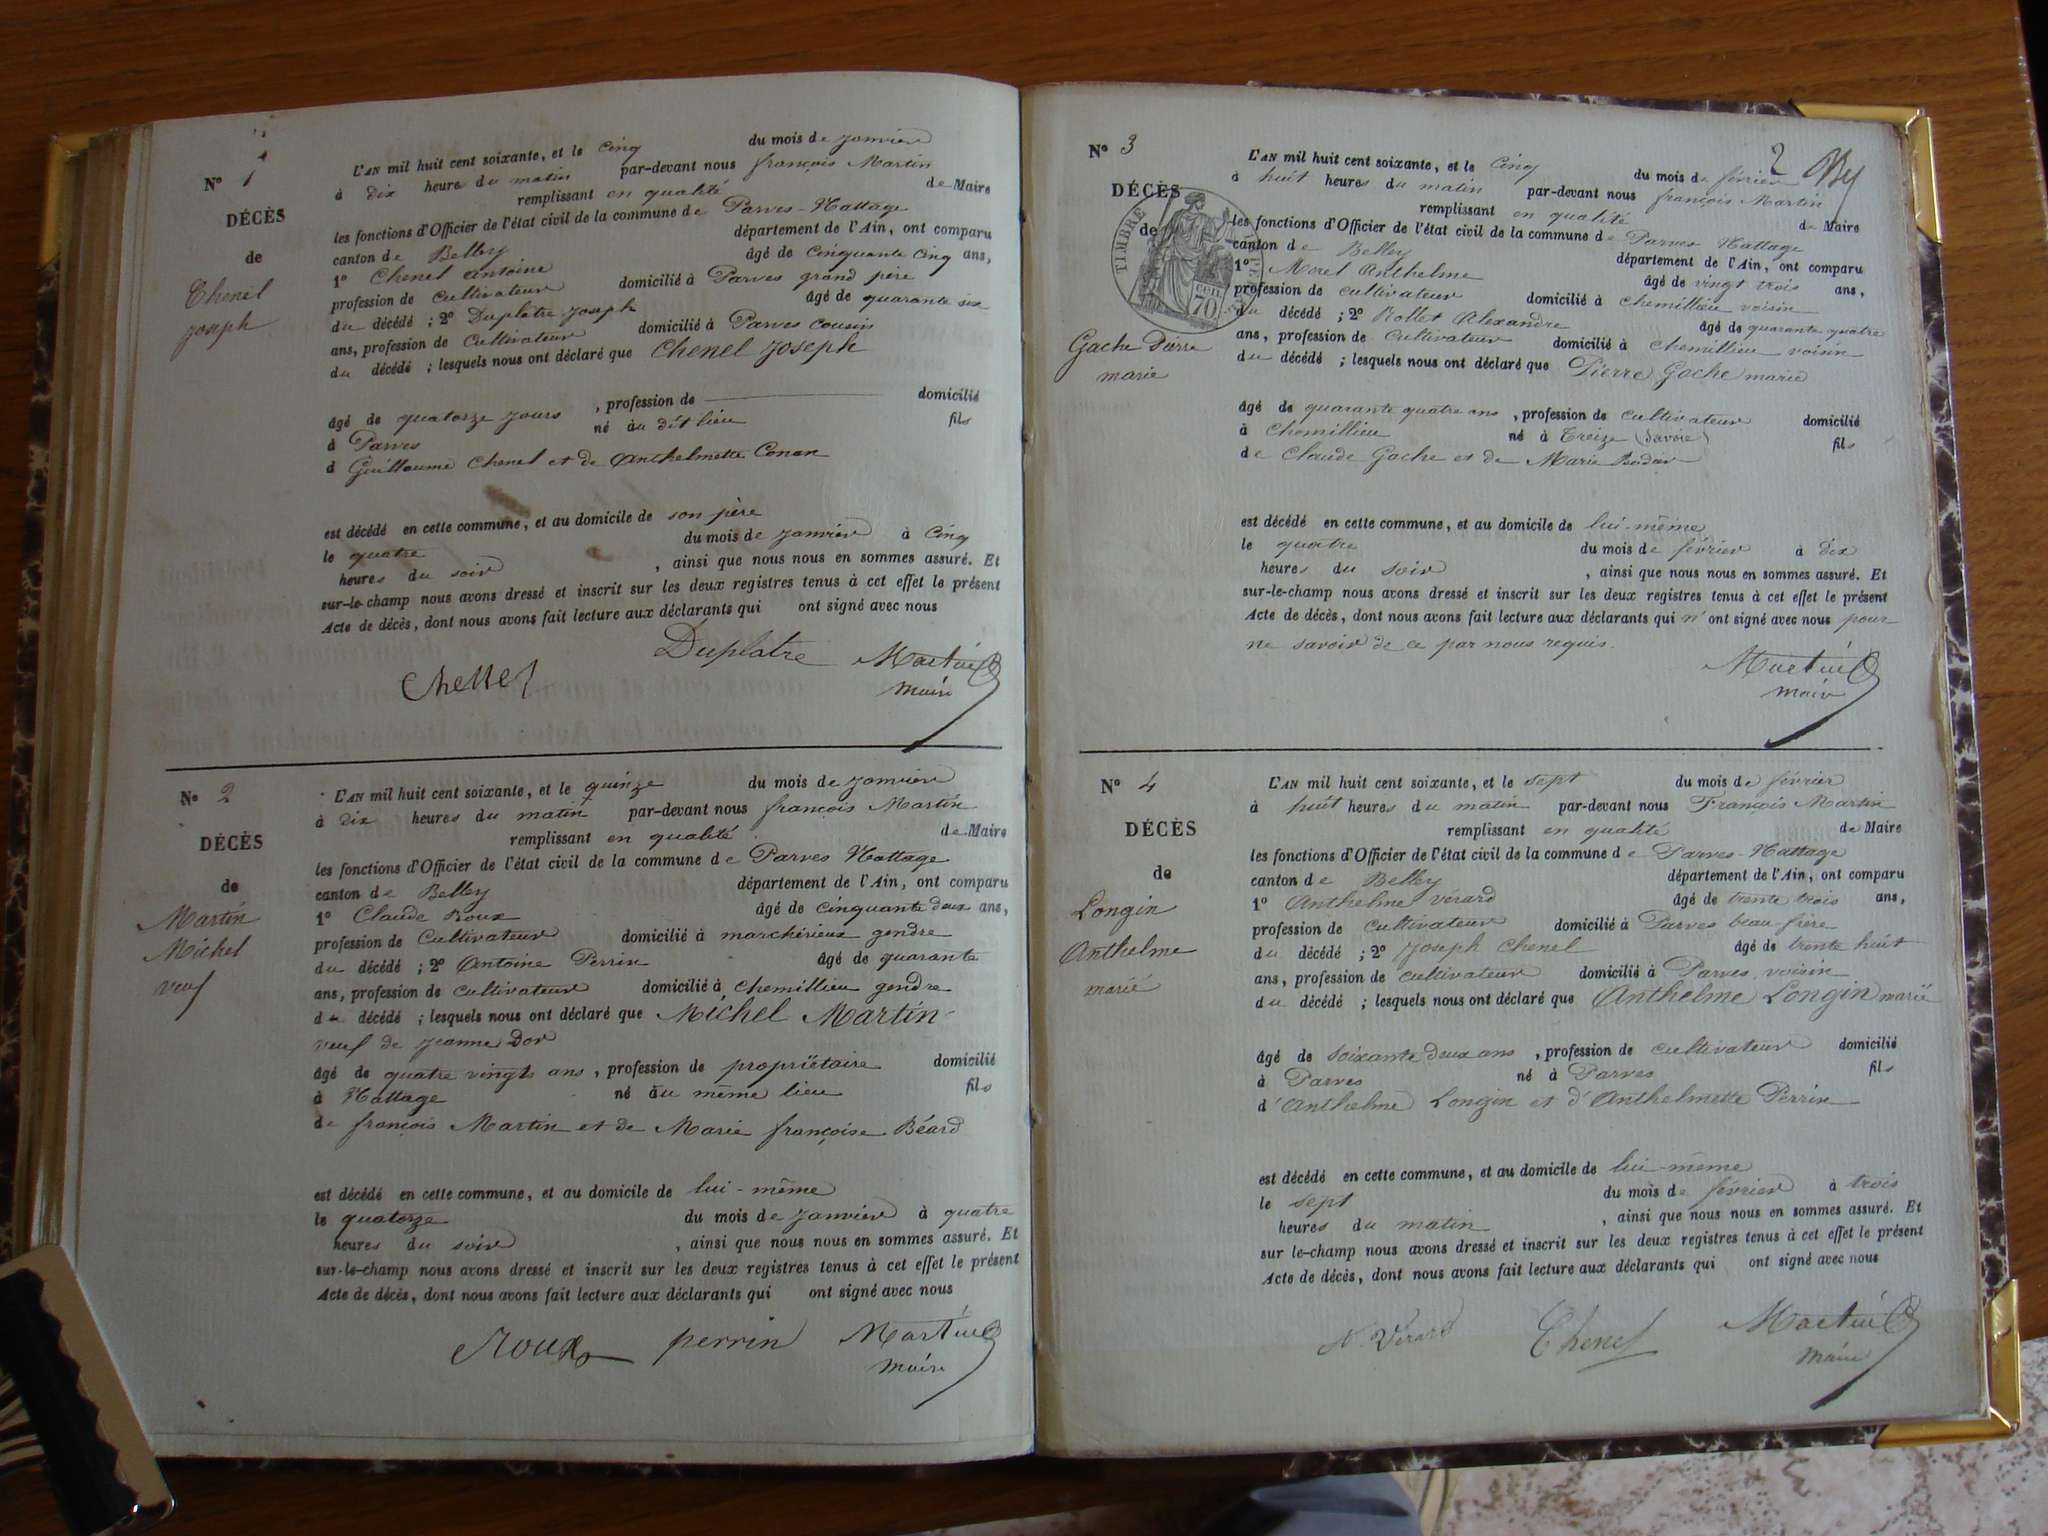 N° 1
DÉCÈS
de
Chenel
Joseph
L'AN mil huit cent soixante, et le cinq du mois de janvier
à dix heures du matin par-devant nous françois Martin
remplissant en qualité de Maire
les fonctions d'Officier de l'état civil de la commune de Parves-Nattage
canton de Belley département de l'Ain, ont comparu
1° Chenel Antoine âgé de cinquante cinq ans,
profession de cultivateur domicilié à Parves grand père
du décédé ; 2° Duplatre Joseph âgé de quarante six
ans, profession de cultivateur domicilié à Parves cousin
du décédé ; lesquels nous ont déclaré que Chenel Joseph
âgé de quatorze jours , profession de domicilié
à Parves né au dit lieu fils
d Guillaume Chenel et de Anthelmette Conan
est décédé en cette commune, et au domicile de son père
le quatre du mois de janvier à cinq
heures du soir , ainsi que nous nous en sommes assuré. Et
sur-le-champ nous avons dressé et inscrit sur les deux registres tenus à cet effet le présent
Acte de décès, dont nous avons fait lecture aux déclarants qui ont signé avec nous
Duplatre Martin
Chenel maire
N° 2
DÉCÈS
de
Martin
Michel
veuf
L'AN mil huit cent soixante, et le quinze du mois de janvier
à dix heures du matin par-devant nous françois Martin
remplissant en qualité de Maire
les fonctions d'Officier de l'état civil de la commune de Parves Nattage
canton de Belley département de l'Ain, ont comparu
1° Claude Roux âgé de cinquante deux ans,
profession de cultivateur domicilié à marchérieux gendre
du décédé ; 2° Antoine Perrin âgé de quarante
ans, profession de cultivateur domicilié à chemillieu gendre
du décédé ; lesquels nous ont déclaré que Michel Martin
veuf de jeanne Dor
âgé de quatre vingts ans , profession de propriétaire domicilié
à Nattage né au même lieu fils
de françois Martin et de Marie françoise Béard
est décédé en cette commune, et au domicile de lui-même
le quatorze du mois de janvier à quatre
heures du soir , ainsi que nous nous en sommes assuré. Et
sur-le-champ nous avons dressé et inscrit sur les deux registres tenus à cet effet le présent
Acte de décès, dont nous avons fait lecture aux déclarants qui ont signé avec nous
Roux perrin Martin
maire
2
N° 3
DÉCÈS
de
TIMBRE
70 CEN
Gache Pierre
marié
L'AN mil huit cent soixante, et le cinq du mois de février
à huit heures du matin par-devant nous françois Martin
remplissant en qualité de Maire
les fonctions d'Officier de l'état civil de la commune de Parves Nattage
canton de Belley département de l'Ain, ont comparu
1° Morel Anthelme âgé de vingt trois ans,
profession de cultivateur domicilié à chemillieu voisin
du décédé ; 2° Rollet Alexandre âgé de quarante quatre
ans, profession de cultivateur domicilié à chemillieu voisin
du décédé ; lesquels nous ont déclaré que Pierre Gache marié
âgé de quarante quatre ans , profession de cultivateur domicilié
à chemillieu né à Treize (Savoie) fils
de Claude Gache et de Marie
est décédé en cette commune, et au domicile de lui-même
le quatre du mois de février à dix
heures du soir , ainsi que nous nous en sommes assuré. Et
sur-le-champ nous avons dressé et inscrit sur les deux registres tenus à cet effet le présent
Acte de décès, dont nous avons fait lecture aux déclarants qui n'ont signé avec nous pour
ne savoir de ce par nous requis.
Martin
maire
N° 4
DÉCÈS
de
Longin
Anthelme
marié
L'AN mil huit cent soixante, et le sept du mois de février
à huit heures du matin par-devant nous François Martin
remplissant en qualité de Maire
les fonctions d'Officier de l'état civil de la commune de Parves-Nattage
canton de Belley département de l'Ain, ont comparu
1° Anthelme vérard âgé de trente trois ans,
profession de cultivateur domicilié à Parves beau-frère
du décédé ; 2° Joseph Chenel âgé de trente huit
ans, profession de cultivateur domicilié à Parves, voisin
du décédé ; lesquels nous ont déclaré que Anthelme Longin marié
âgé de soixante deux ans , profession de cultivateur domicilié
à Parves né à Parves fils
d'Anthelme Longin et d'Anthelmette Perrin
est décédé en cette commune, et au domicile de lui-même
le sept du mois de février à trois
heures du matin , ainsi que nous nous en sommes assuré. Et
sur le-champ nous avons dressé et inscrit sur les deux registres tenus à cet effet le présent
Acte de décès, dont nous avons fait lecture aux déclarants qui ont signé avec nous
Verard Chenel Martin
maire